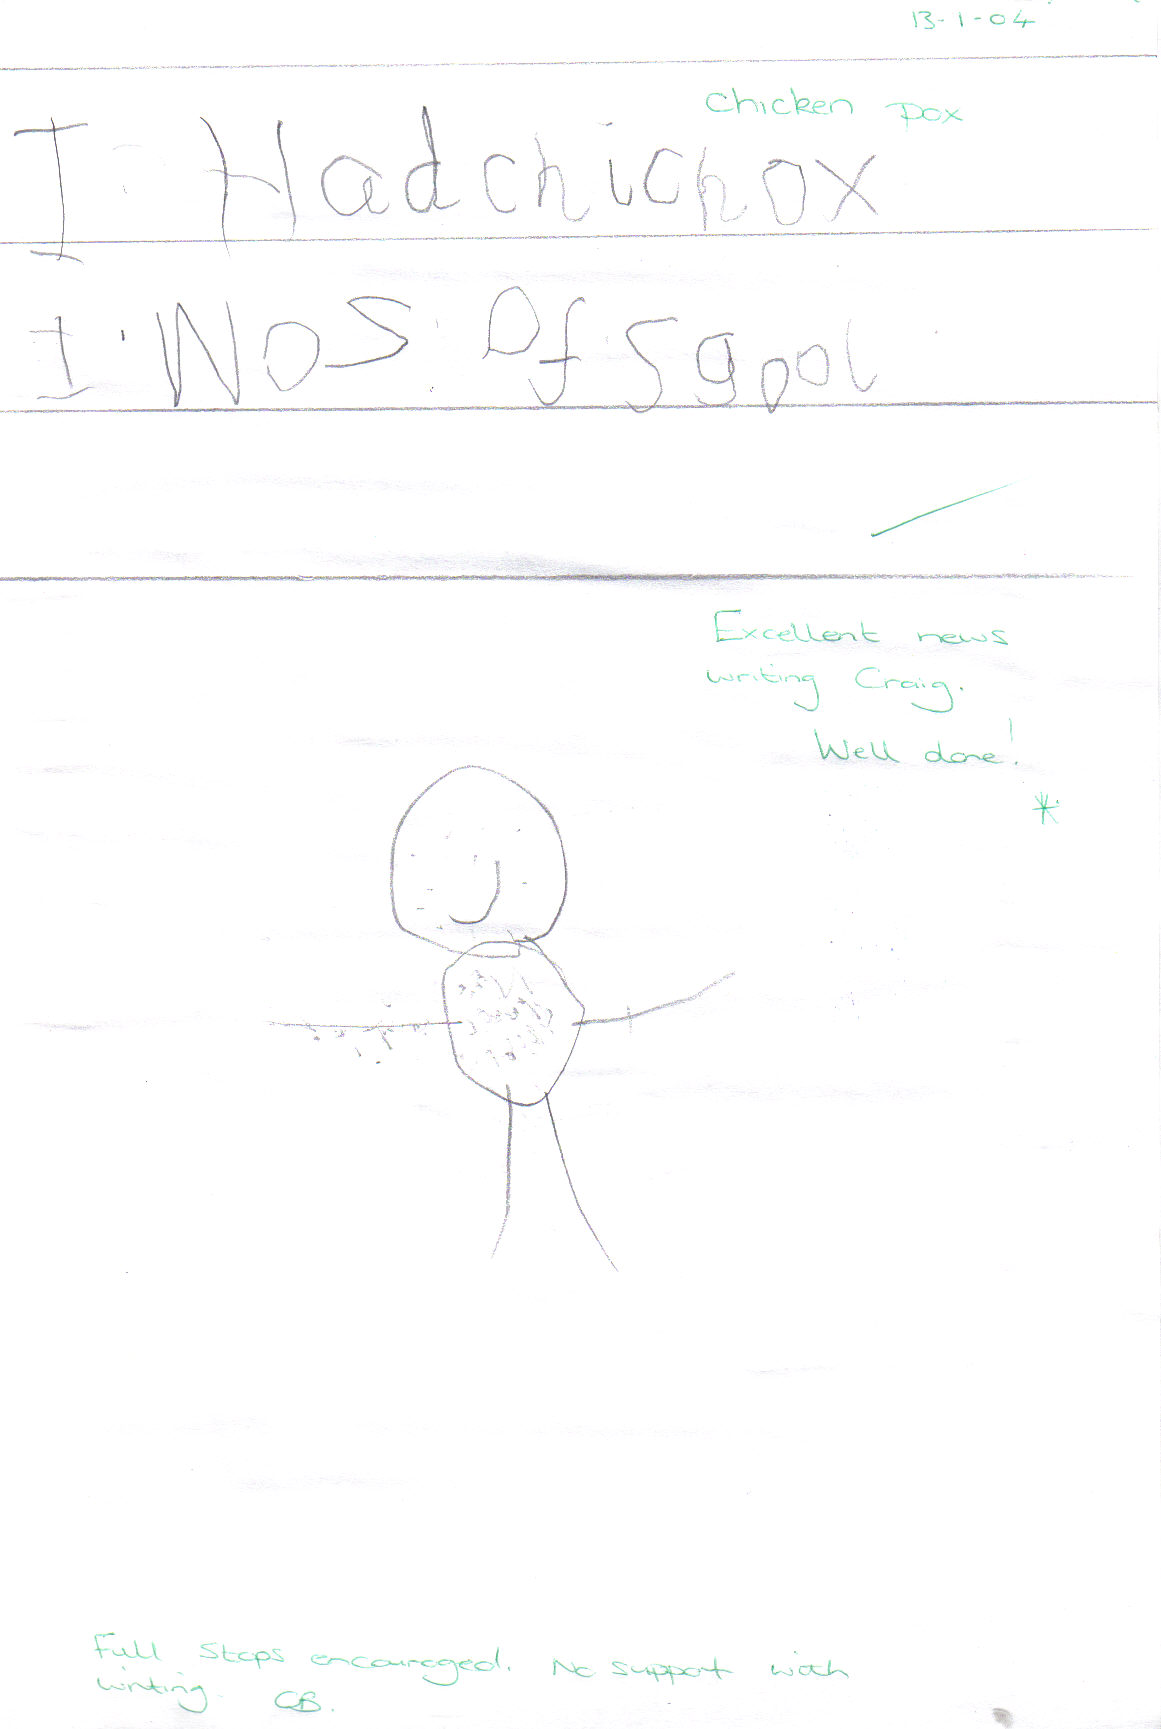 13-1-04
chicken pox
I Had chicpox
I. Wos Of Sgool
Excellent news
writing Craig.
Well done!
Full stops encouraged. No support with
writing. CB.